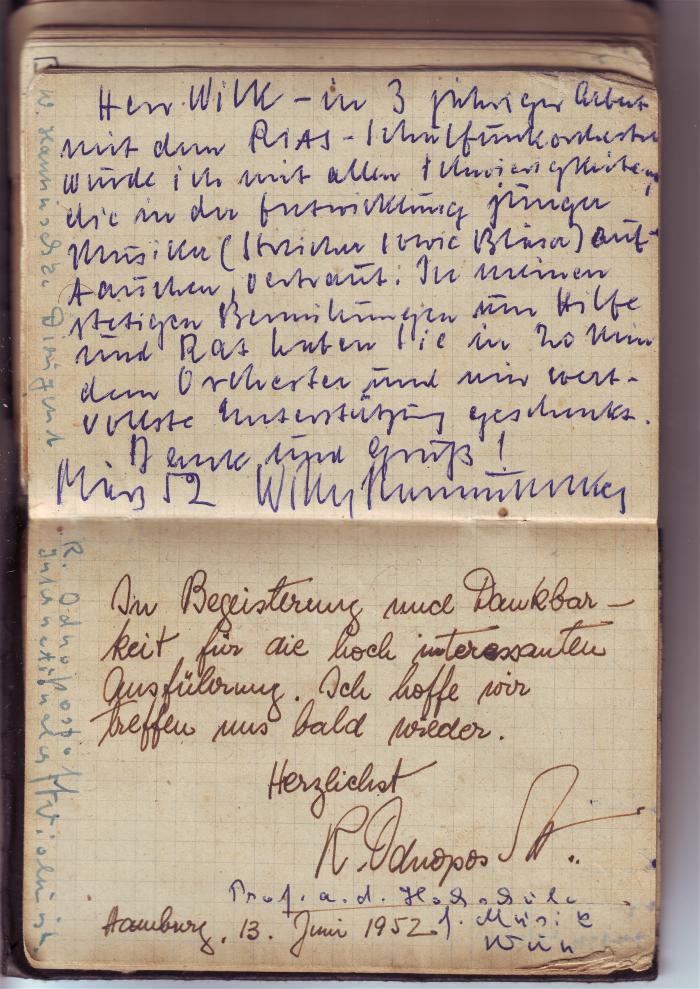 Herr Wilk – in 3 jähriger Arbeit
mit dem RIAS-Schulfunkorchester
wurde ich mit allen Schwierigkeiten,
die in der Entwicklung junger
Musiker (Streicher sowie Bläser) auf-
tauchen, vertraut. In meinen
stetigen Bemühungen um Hilfe
und Rat haben Sie in 20 Min
dem Orchester und mir wert-
vollste Unterstützung geschenkt.
Dank und Gruß!
März 52 Willy
W. Dirigent
In Begeisterung und Dankbar-
keit für die hoch interessanten
Ausführung. Ich hoffe wir
treffen uns bald wieder.
Herzlichst
R. Odnoposoff
Prof. a. d. Hochschule
f. Musik
Wien
Hamburg, 13. Juni 1952
R. Odnoposoff
internationaler Violinist